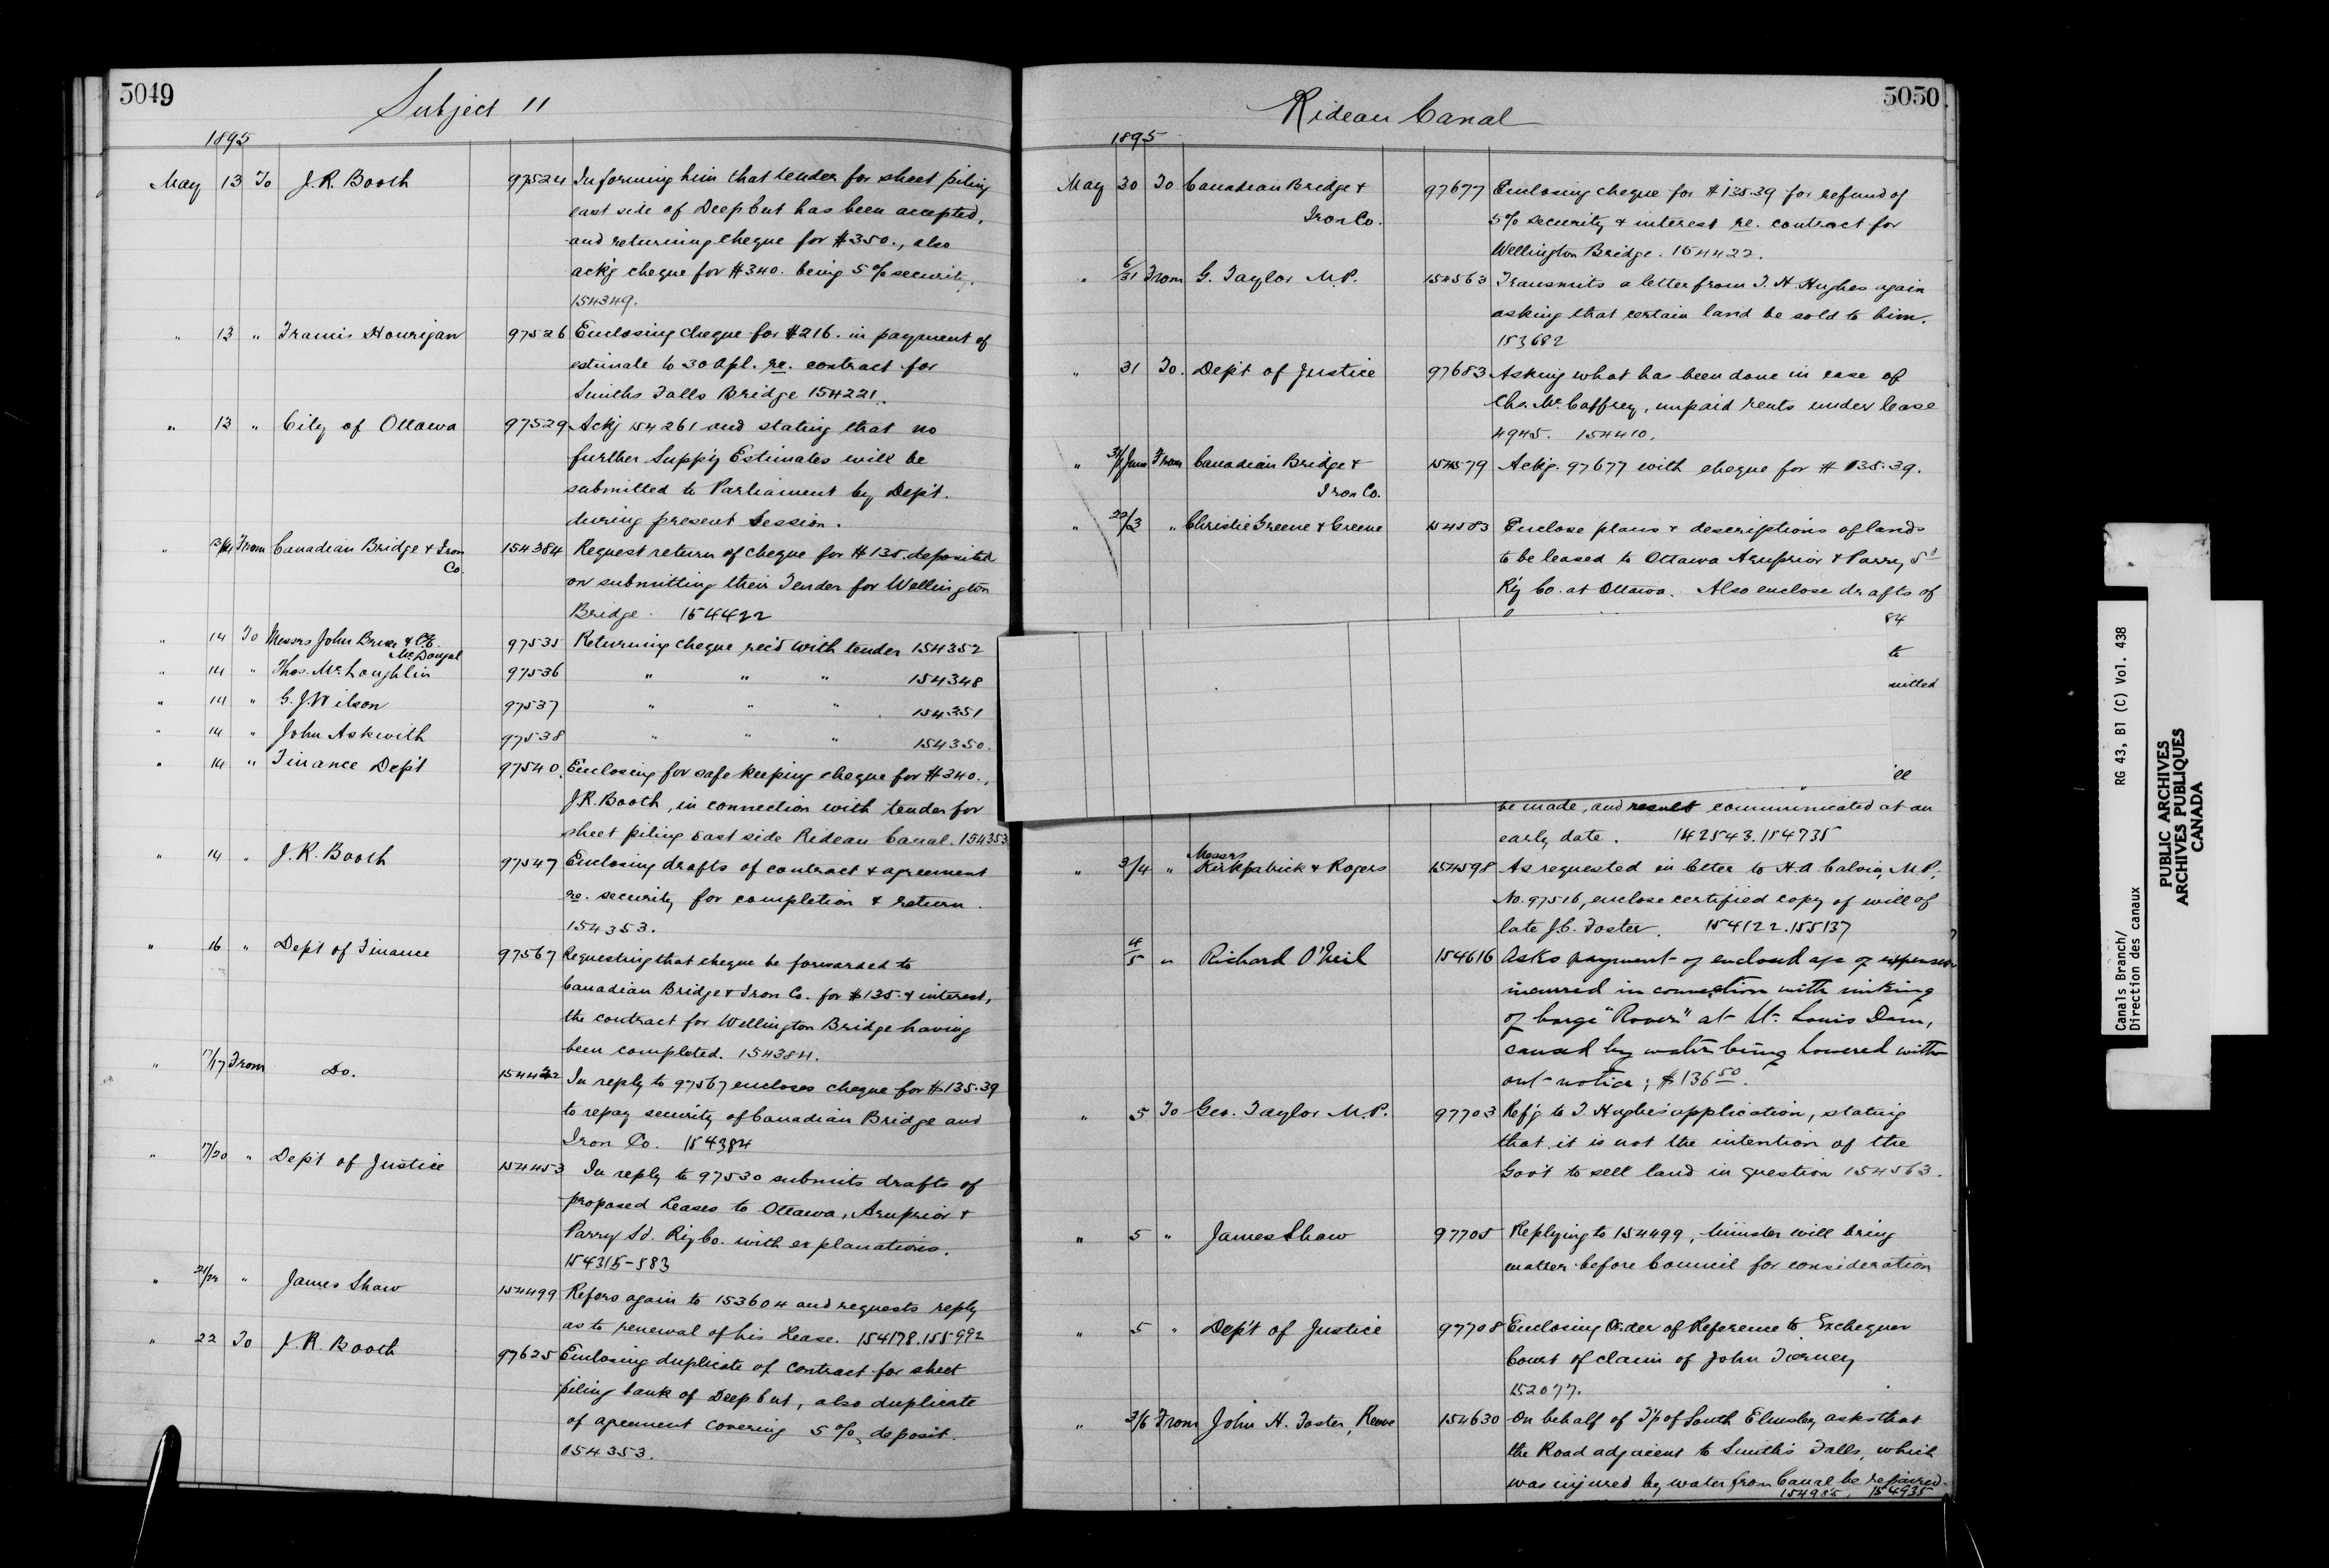 5049
Subject 11
1895
May 13 To J. R. Booth 97524 Informing him that tender for sheet piling
east side of Deep Cut has been accepted,
and returning cheque for $350., also
ack'g cheque for $340. being 5% security.
154349.
" 13 " Francis Hourigan 97526 Enclosing cheque for $216. in payment of
estimate to 30 Apl. re. contract for
Smiths Falls Bridge 154221.
" 13 " City of Ottawa 97529 Ackg 154261 and stating that no
further Supp'y Estimates will be
submitted to Parliament by Dep't.
during present Session.
" 13/14 From Canadian Bridge & Iron 154384 Request return of cheque for $135. deposited
Co.
on submitting their Tender for Wellington
Bridge. 154422
" 14 To Messrs John & 97535 Returning cheque rec'd with tender 154352
McDougal
" 14 " Thos. McLaughlin 97536 " " " 154348
" 14 " G. J. Wilson 97537 " " " 154351
" 14 " John Askwith 97538 " " " 154350.
" 14 " Finance Dep't 97540. Enclosing for safe keeping cheque for $340.,
J.R. Booth, in connection with tender for
sheet piling East side Rideau Canal. 154353
" 14 " J. R. Booth 97547 Enclosing drafts of contract & agreement
re. security for completion & return.
154353.
" 16 " Dep't of Finance 97567 Requesting that cheque be forwarded to
Canadian Bridge & Iron Co. for $135. & interest,
the contract for Wellington Bridge having
been completed. 154384.
" 17/17 From Do. 154422 In reply to 97567 encloses cheque for $135.39
to repay security of Canadian Bridge and
Iron Co. 154384
" 17/20 " Dep't of Justice 154453 In reply to 97530 submits drafts of
proposed Leases to Ottawa, Arnprior &
Parry Sd. Ry Co. with explanations.
154315-583
" " James Shaw 154499 Refers again to 153604 and requests reply
as to renewal of his Lease. 154178.155992
" 22 To J. R. Booth 97625 Enclosing duplicate of contract for sheet
piling bank of Deep Cut, also duplicate
of agreement covering 5% deposit.
154353.
5050
Rideau Canal
1895
May 30 To Canadian Bridge & 97677 Enclosing cheque for $135.39 for refund of
Iron Co. 5% security & interest re. contract for
Wellington Bridge. 154422.
" 6/31 From G. Taylor M.P. 154563 Transmits a letter from T. H. Hughes again
asking that certain land be sold to him.
153682
" 31 To. Dep't of Justice 97683 Asking what has been done in case of
Chs. McCaffrey, unpaid rents under lease
4945. 154410.
" June From Canadian Bridge & 154579 Ackg. 97677 with cheque for $135.39.
Iron Co.
" 22/3 " Christie Greene & Greene 154583 Enclose plans & descriptions of lands
to be leased to Ottawa Arnprior & Parry Sd
Ry Co. at Ottawa. Also enclose drafts of
84
to
mitted
ill
be made, and result communicated at an
early date. 142543.154735
" 3/4 " Messrs
Kirkpatrick & Rogers 154598 As requested in letter to H.A. Calvin, M.P.
No. 97516, enclose certified copy of will of
late J.C. Foster. 154122.155137
4/5 " Richard O'Neil 154616 Asks payment of enclosed a/c of expenses
incurred in connection with sinking
of barge "Rover" at St. Louis Dam,
caused by water being lowered with-
out notice; $136.50.
" 5 To Geo. Taylor M.P. 97703 Ref'g to T. Hughes' application, stating
that it is not the intention of the
Gov't to sell land in question 154563.
" 5 " James Shaw 97705 Replying to 154499, Minister will bring
matter before Council for consideration
" 5 " Dep't of Justice 97708 Enclosing Order of Reference to Exchequer
Court of claim of John Tierney
152077.
" 3/6 From John H. Foster, Reeve 154630 On behalf of T'p of South Elmsley asks that
the Road adjacent to Smith's Falls, which
was injured by water from Canal be repaired.
154985, 154935
Canals Branch/ RG 43, B1 (C) Vol. 438
Direction des canaux
PUBLIC ARCHIVES
ARCHIVES PUBLIQUES
CANADA